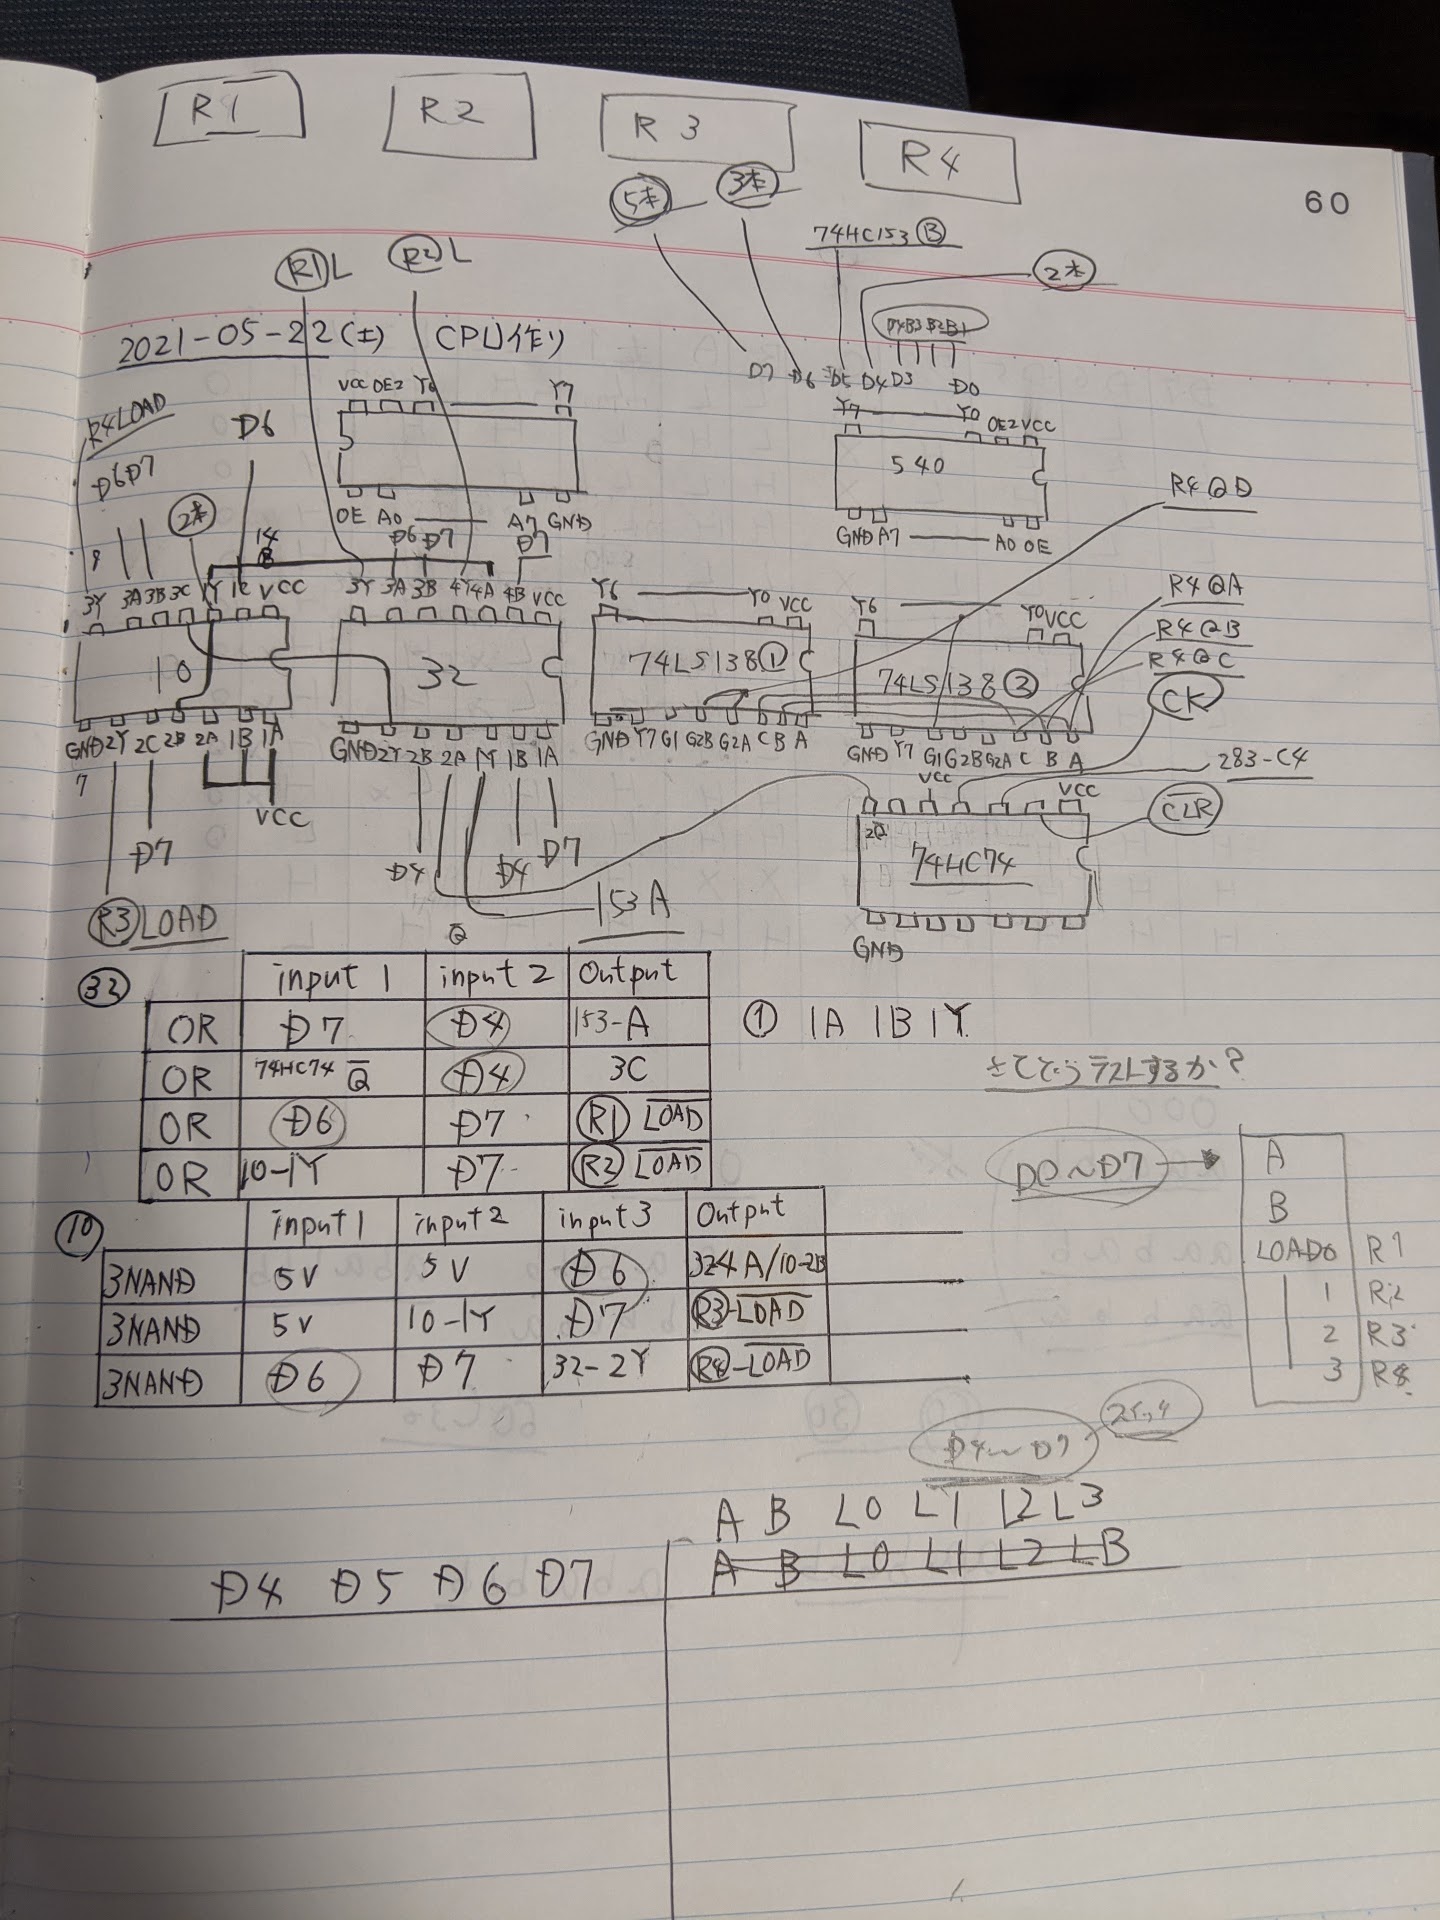 R1 R2 R3 R4
60
5本 3本
74HC153 B
R1 L R2 L
2本
2021-05-22(土) CPU作り
D4B3B2B1
D7 D6 D5 D4 D3 D0
VCC OE2 Y0 Y7
Y7 Y0 OE2 VCC
R4LOAD
D6
540
D6D7
2本
R4QD
OE A0 A7 GND
GND A7 A0 OE
14
8
D6 D7 D7
3Y 3A 3B 3C 1Y 1C VCC
3Y 3A 3B 4Y 4A 4B VCC
Y6 Y0 VCC
Y6 Y0 VCC
R4QA
R4QB
R4QC
10
32
74LS138①
74LS138②
CK
GND 2Y 2C 2B 2A 1B 1A
GND 2Y 2B 2A 1Y 1B 1A
GND Y7 G1 G2B G2A C B A
GND Y7 G1 G2B G2A C B A
7
283-C4
VCC VCC
VCC
CLR
2Q
74HC74
D7
D4 D4 D7
153A
R3 LOAD
GND
Q
32
input 1 input 2 Output
OR D7 D4 153-A
OR 74HC74 Q D4 3C
OR D6 D7 R1 LOAD
OR 10-1Y D7 R2 LOAD
① 1A 1B 1Y
さてどうテストするか?
D0~D7
A
B
LOAD0 R1
1 R2
2 R3
3 R4
10
input 1 input 2 input 3 Output
3NAND 5V 5V D6 324A/10-2B
3NAND 5V 10-1Y D7 R3-LOAD
3NAND D6 D7 32-2Y R4-LOAD
D4~D7
A B L0 L1 L2 L3
A B L0 L1 L2 LB
D4 D5 D6 D7